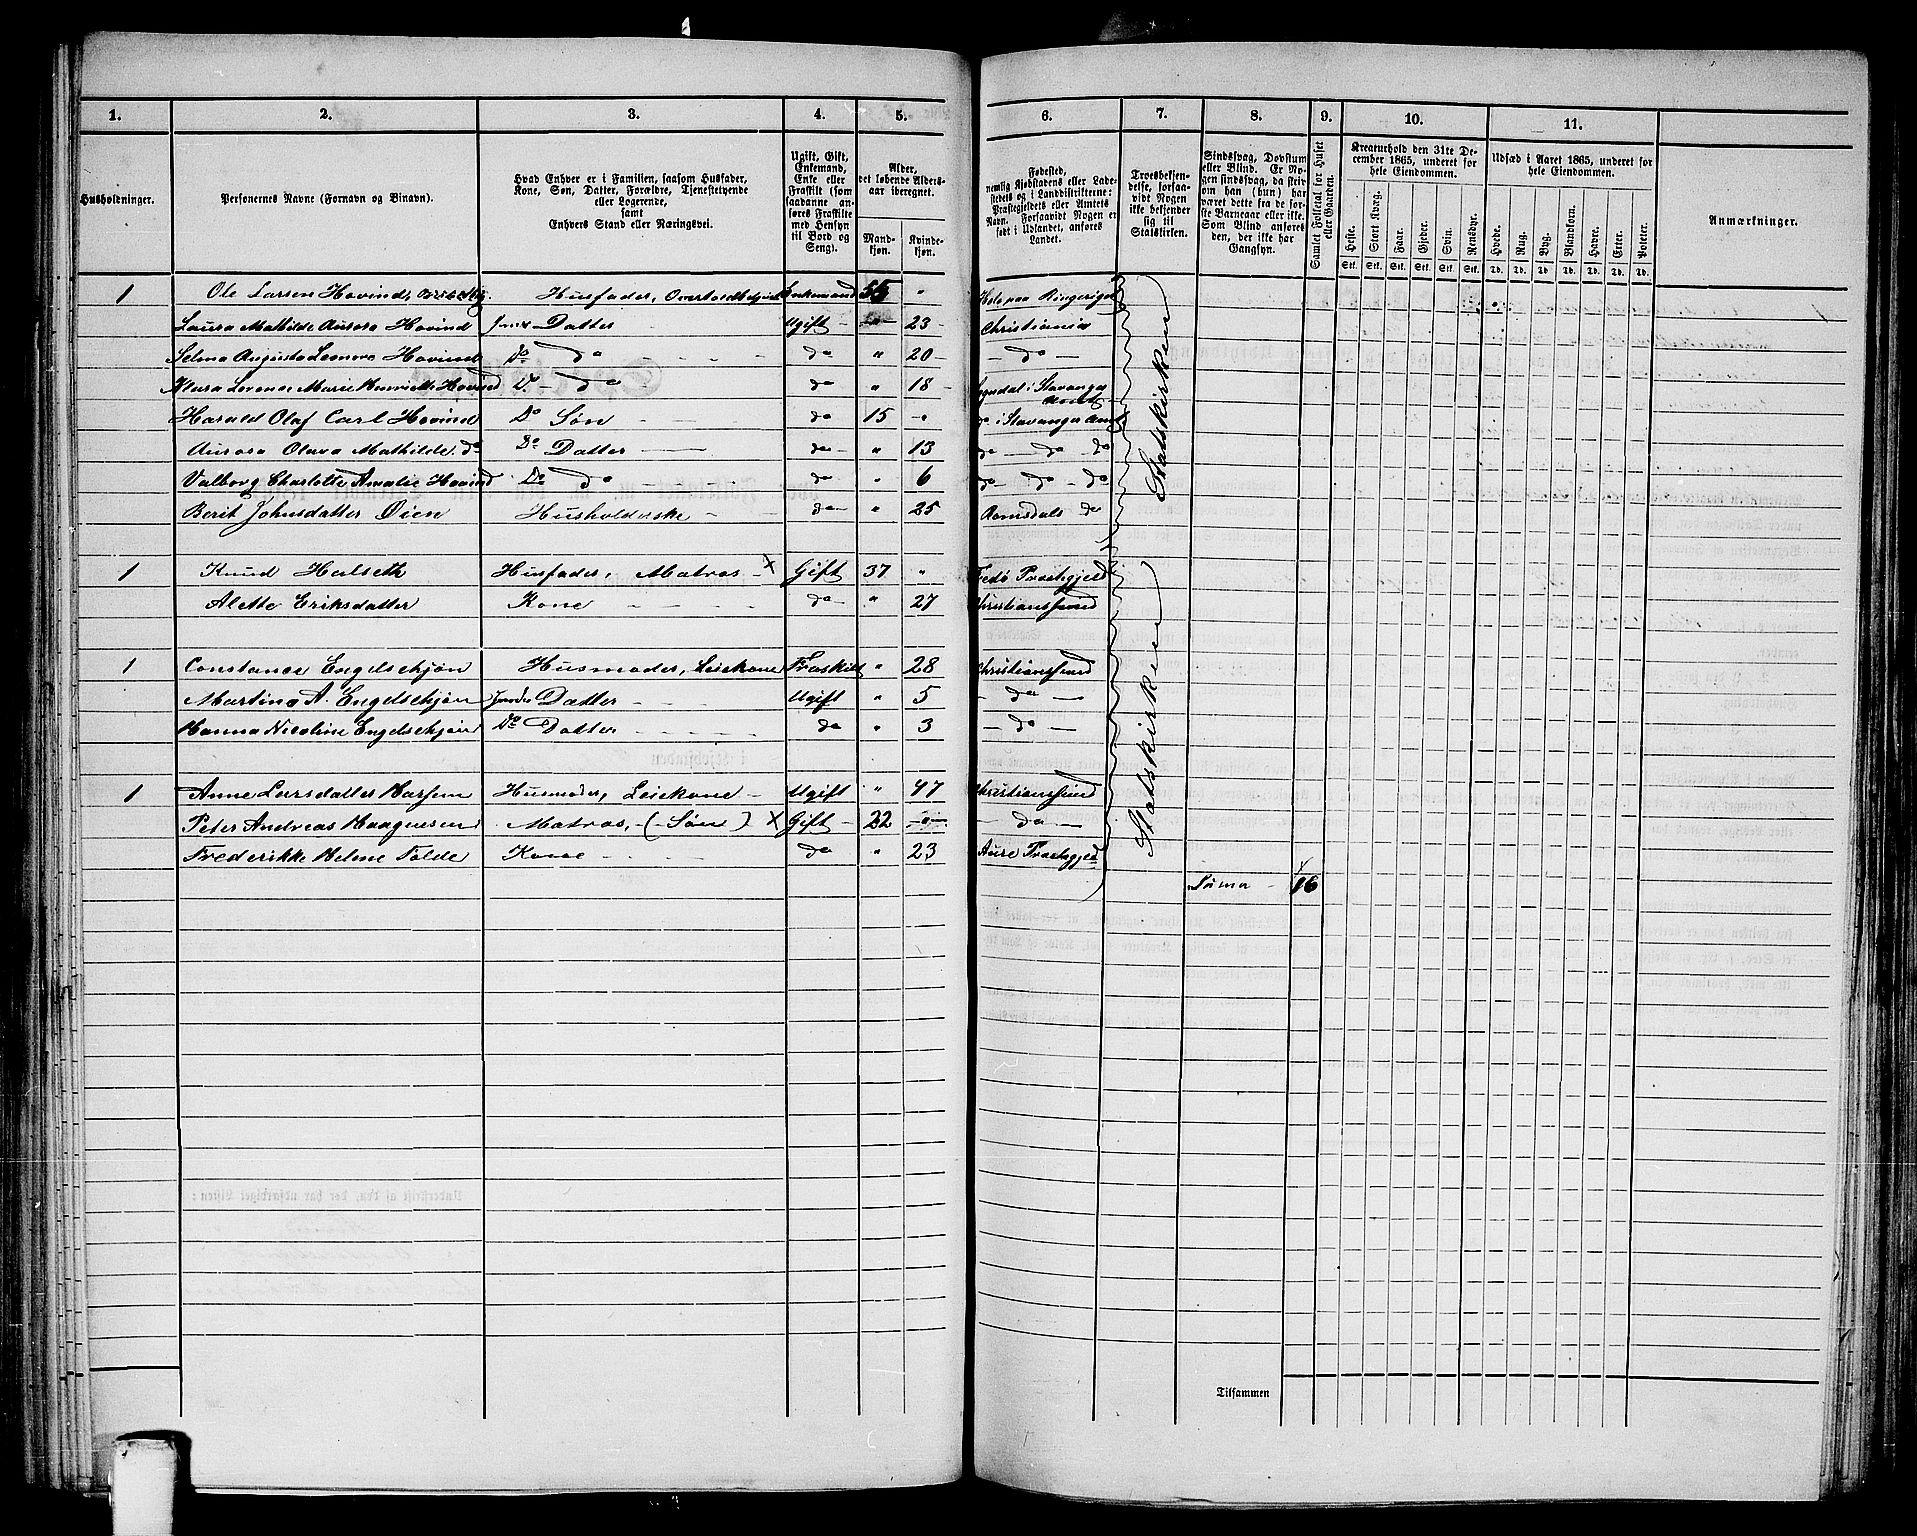 1. 2. 3. 4. 5. 6. 7. 8. 9. 10. 11.
Husholdninger.
Personernes Navne (Fornavn og Binavn).
Hvad Enhver er i Familien, saasom Husfader,
Kone, Søn, Datter, Forældre, Tjenestetyende
eller Logerende,
samt
Enhvers Stand eller Næringsvei.
Ugift, Gift,
Enkemand,
Enke eller
Fraskilt (som
saadanne an-
føres Fraskilte
med Hensyn
til Bord og
Seng).
Alder,
det løbende Alders-
aar iberegnet.
Mand-
kjøn.
Kvinde-
kjøn.
Fødested,
nemlig Kjøbstadens eller Lade-
stedets og i Landdistrikterne:
Præstegjeldets eller Amtets
Navn. Forsaavidt Nogen er
født i Udlandet, anføres
Landet.
Troesbekjen-
delse, forsaa-
vidt Nogen
ikke bekjender
sig til
Statskirken.
Sindssvag, Døvstum
eller Blind. Er No-
gen sindssvag, da skri-
ves om han (hun) har
været dette fra de før-
ste Barneaar eller ikke.
Som Blind anføres
den, der ikke har
Gangsyn.
Samlet Folketal for Huset
eller Gaarden.
Kreaturhold den 31te De-
cember 1865, underet for
hele Eiendommen.
Heste. Stort Kvæg. Faar. Gjeder. Svin. Rensdyr.
Stk. Stk. Stk. Stk. Stk. Stk.
Udsæd i Aaret 1865, underet for
hele Eiendommen.
Hvede. Rug. Byg. Blandkorn. Havre. Erter. Poteter.
Td. Td. Td. Td. Td. Td. Td.
Anmærkninger.
1 Ole Larsen Hovind, Husfader, Enkemand 55 " Hole paa Ringerige
Laura Mathilde Aurora Hovind Datter Ugift - " - 23 - Christiania
Selma Augusta Leonora Hovind Do do do " 20 - - do -
Klara Lovense Marie Henriette Hovind Do - do do " 18 - Sogndal i Stavanger Amt
Harald Olaf Carl Hovind Do Søn do 15 " do i Stavanger Amt
Aurora Olava Mathilde do Do Datter do " 13 do - do - do
Valborg Charlotte Amalie Hovind Do do do " 6 do - do - do
Berit Johnsdatter Øien Husholderske - do - " 25 Romsdals do
Statskirken
1 Knud Halseth Husfader, Matros - x Gift 37 " Fredø Præstegjeld
Alette Eriksdatter Kone do - " 27 Christianssund
1 Constance Engelschjøn Husmoder, Leiekone Fraskilt " 28 Christianssund
Martina A. Engelschjøn Datter Ugift " 5 - do -
Hanna Nicoline Engelschjøn Do Datter do " 3 - do -
Statskirken
1 Anne Larsdatter Husmoder, Leiekone - Ugift " 47 Christianssund
Peter Andreas Matros, (Søn) x Gift - 22 - " - do -
Frederikke Helene Folde Kone do " 23 Aure Præstegjeld
Suma - 16
Tilsammen